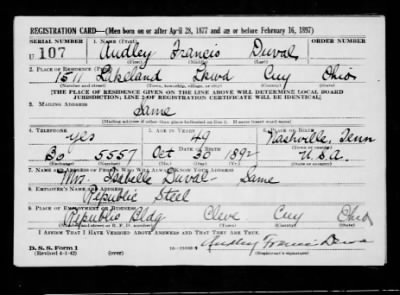 REGISTRATION CARD—(Men born on or after April 28, 1877 and on or before February 16, 1897)
SERIAL NUMBER 1. NAME (Print) ORDER NUMBER
U 107 Audley Francis Duval
2. PLACE OF RESIDENCE (Print)
1511 Lakeland Lkwd Cuy Ohio
(Number and street) (Town, township, village, or city) (County) (State)
[THE PLACE OF RESIDENCE GIVEN ON THE LINE ABOVE WILL DETERMINE LOCAL BOARD
JURISDICTION; LINE 2 OF REGISTRATION CERTIFICATE WILL BE IDENTICAL]
3. MAILING ADDRESS
Same
[Mailing address if other than place indicated on line 2. If same insert word same]
4. TELEPHONE 5. AGE IN YEARS 6. PLACE OF BIRTH
yes 49 Nashville, Tenn
DATE OF BIRTH (Town or county)
Bo 5557 Oct 30 1892 U.S.A.
(Exchange) (Number) (Mo.) (Day) (Yr.) (State or country)
7. NAME AND ADDRESS OF PERSON WHO WILL ALWAYS KNOW YOUR ADDRESS
Mrs. Isabelle Duval - Same
8. EMPLOYER'S NAME AND ADDRESS
Republic Steel
9. PLACE OF EMPLOYMENT OR BUSINESS
Republic Bldg Cleve Cuy Ohio
(Number and street or R. F. D. number) (Town) (County) (State)
I AFFIRM THAT I HAVE VERIFIED ABOVE ANSWERS AND THAT THEY ARE TRUE.
D. S. S. Form 1 Audley Francis Duval
(Revised 4-1-42) (over)